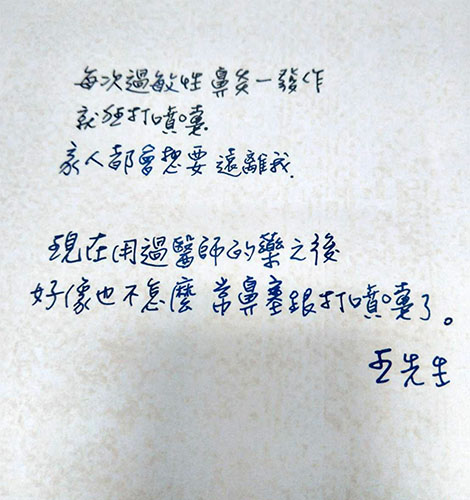 每次過敏性鼻炎一發作
就狂打噴嚏
家人都會想要遠離我.
現在用過醫師的藥之後
好像也不怎麼常鼻塞跟打噴嚏了。
王先生